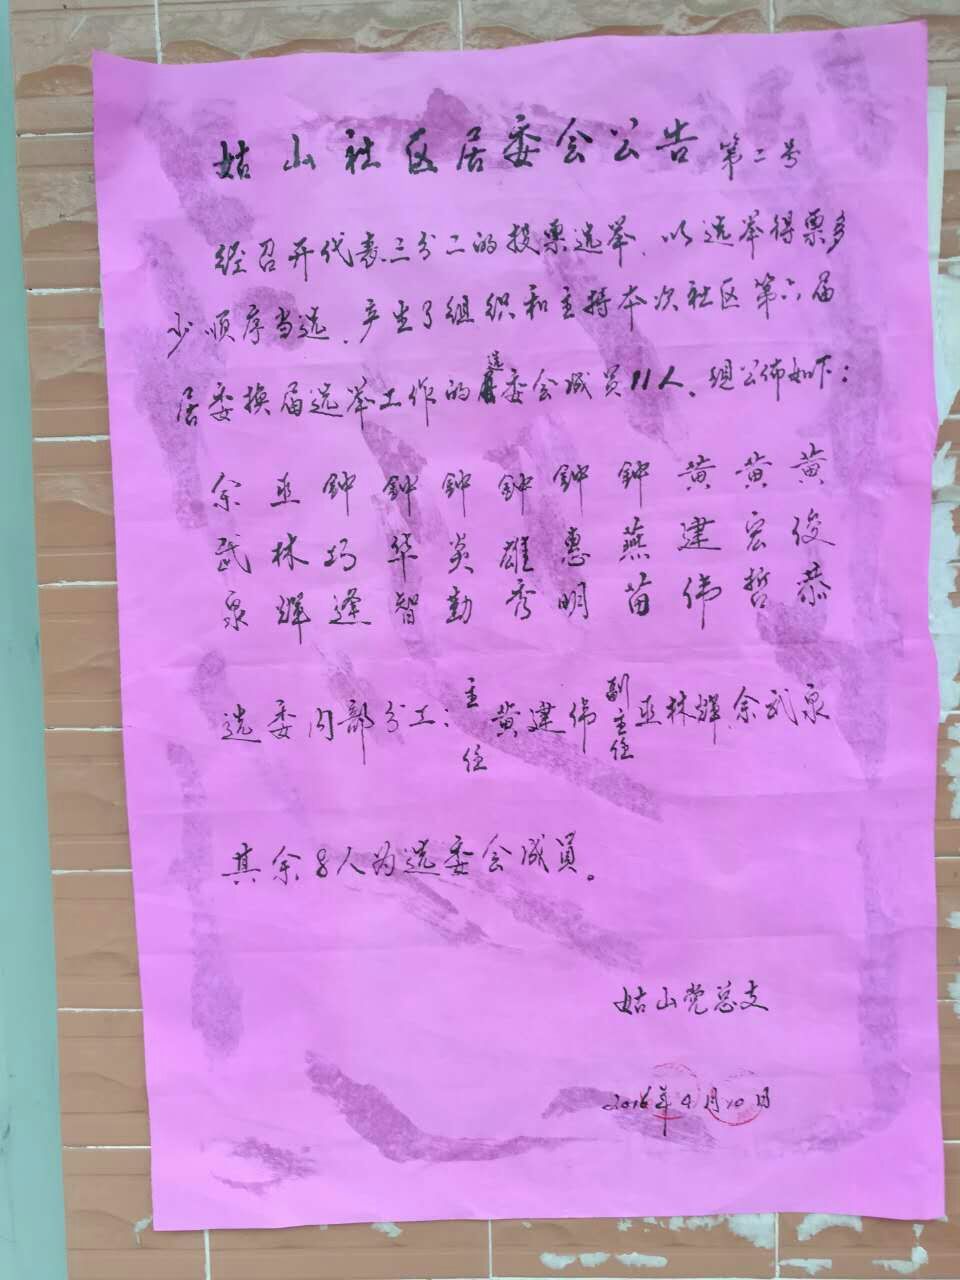 姑山社区居委会公告 第二号
经召开代表三分二的投票选举、以选举得票多
少顺序当选、产生了组织和主持本次社区第六届
居委换届选举工作的选委会成员11人。组公佈如下：
余 巫 鈡 鈡 鈡 鈡 鈡 鈡 黄 黄 黄
武 林 巧 华 炎 雄 惠 燕 建 宏 俊
泉 辉 逢 智 勤 秀 明 苗 伟 哲 恭
选委内部分工：主任 黄建伟 副主任 巫林辉、余武泉
其余8人为选委会成员。
姑山党总支
2016年4月10日